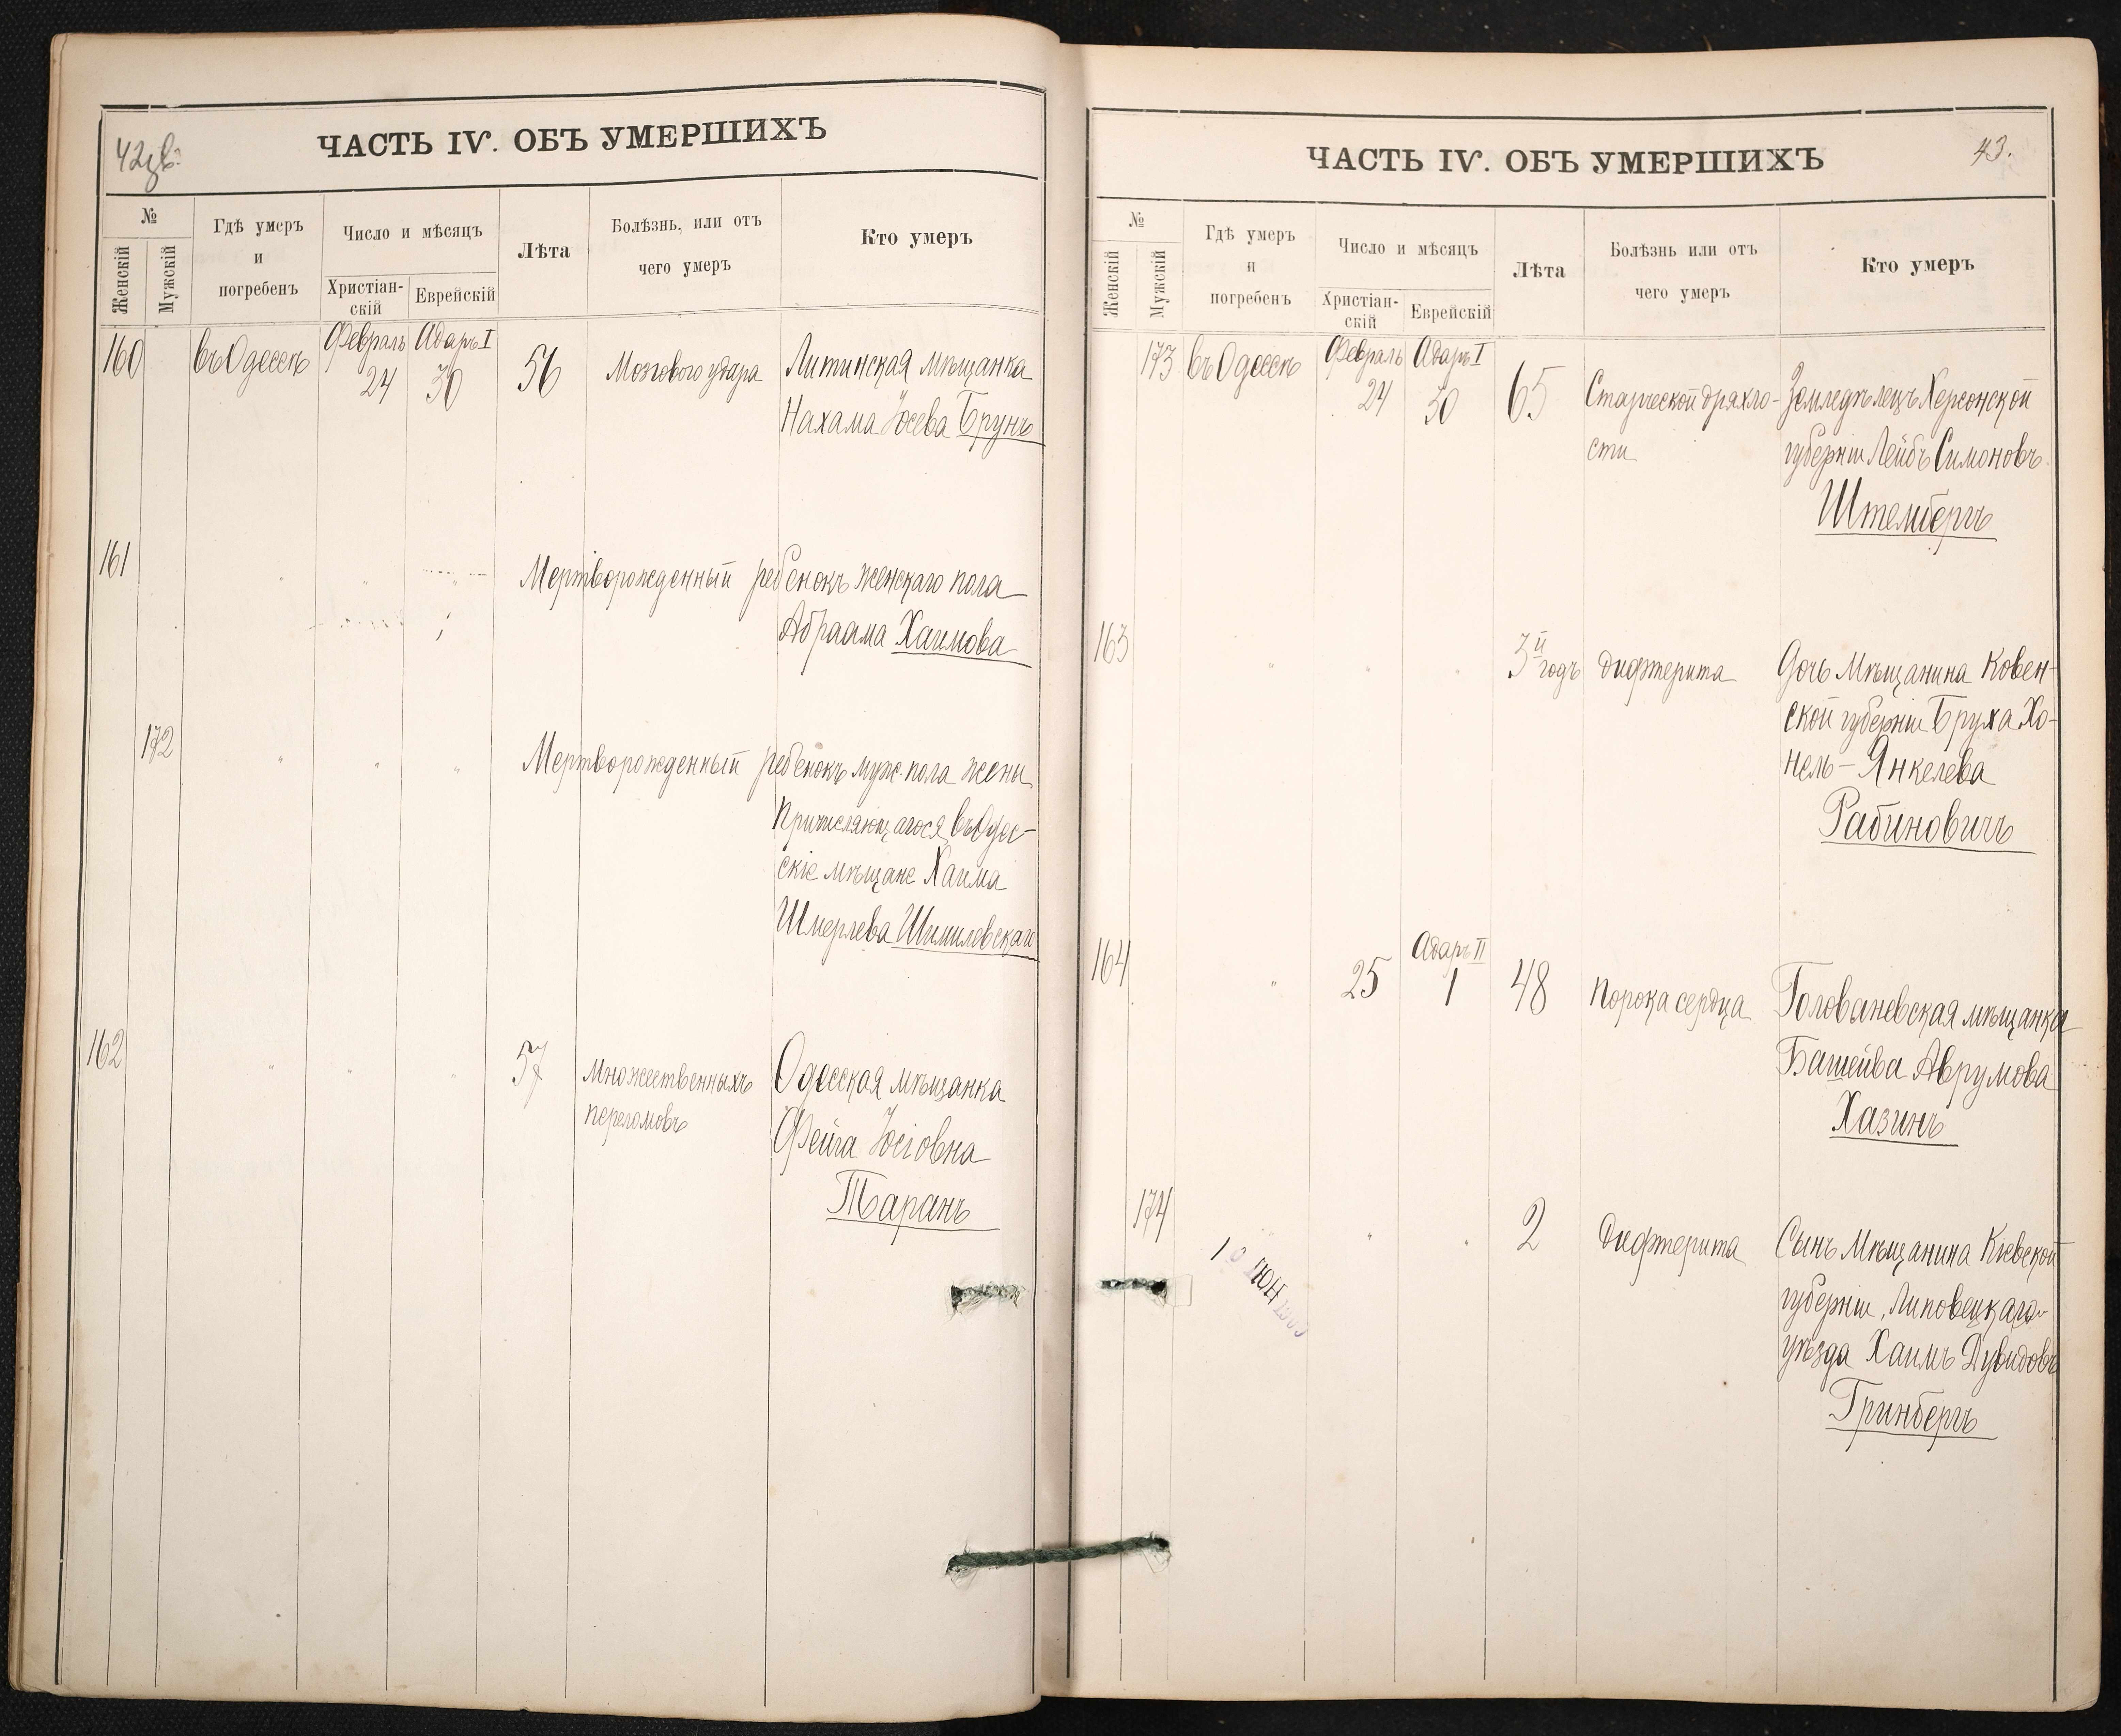 42 об.
ЧАСТЬ IV. ОБЪ УМЕРШИХЪ
№
Женскій
Мужскій
Гдѣ умеръ
и
погребенъ
Число и мѣсяцъ
Христіан-
скій
Еврейскій
Лѣта
Болѣзнь, или отъ
чего умеръ
Кто умеръ
160 въ Одессѣ Февраль 24 Адаръ I 30 56 Мозгового удара Литинская мѣщанка
Нахама Іосева Брунъ
161 " " " Мертворожденный ребенокъ женскаго пола
Абраама Хаимова
172 " " " Мертворожденный ребенокъ муж. пола жены
Причисляющагося въ Одес-
скіе мѣщане Хаима
Шмерлева Шимилевскаго
162 " " " 57 Множественныхъ Одесская мѣщанка
переломовъ Фейга Іосіовна
Таранъ
43.
ЧАСТЬ IV. ОБЪ УМЕРШИХЪ
№
Женскій
Мужскій
Гдѣ умеръ
и
погребенъ
Число и мѣсяцъ
Христіан-
скій
Еврейскій
Лѣта
Болѣзнь или отъ
чего умеръ
Кто умеръ
173 въ Одессѣ Февраль 24 Адаръ I 30 65 Старческой дряхло- Земледѣлецъ Херсонской
сти губерніи Лейбъ Симоновъ
Штембергъ
163 " " " 3й годъ Дифтерита Дочь Мѣщанина Ковен-
ской губерніи Бруха Хо-
нель-Янкелева
Рабиновичъ
164 " 25 Адаръ II 1 48 Порока сердца Голованевская мѣщанка
Башейва Аврумова
Хазинъ
174 " " 2 Дифтерита Сынъ Мѣщанина Кіевской
губерніи, Липовецкаго
уѣзда Хаимъ Дувидовъ
Гринбергъ